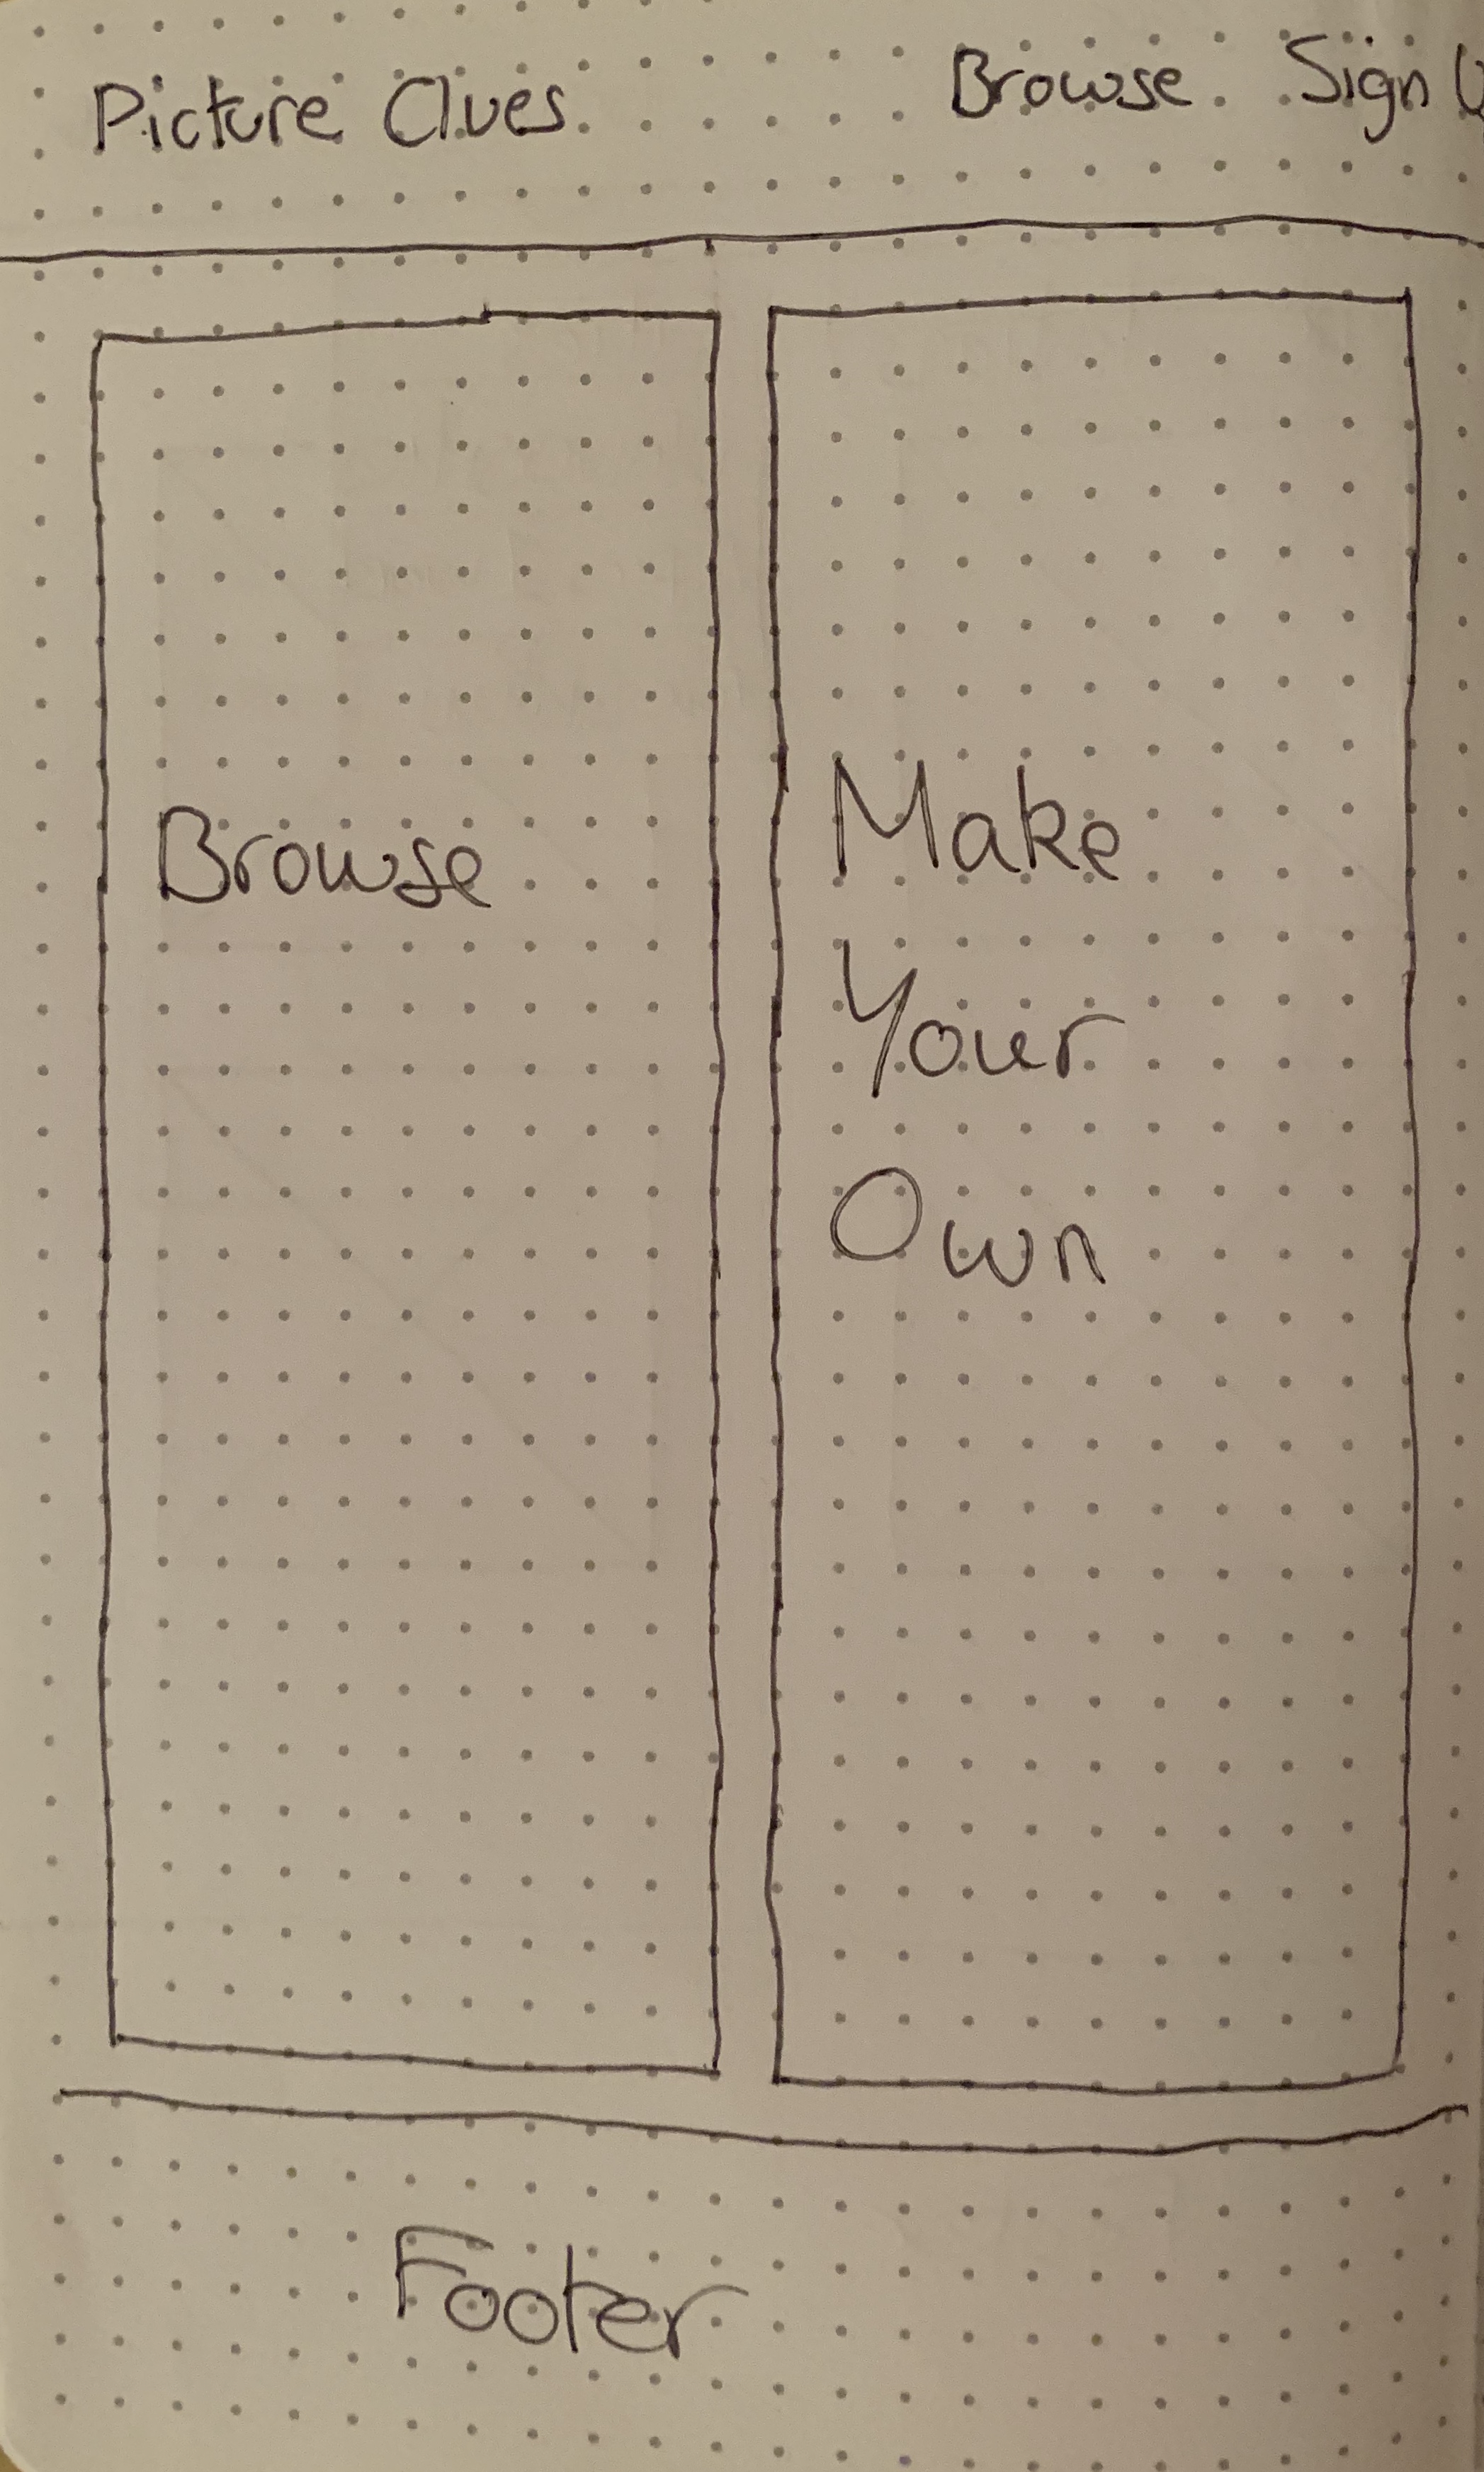 Picture Clues Browse Sign
Browse
Make
Your
Own
Footer